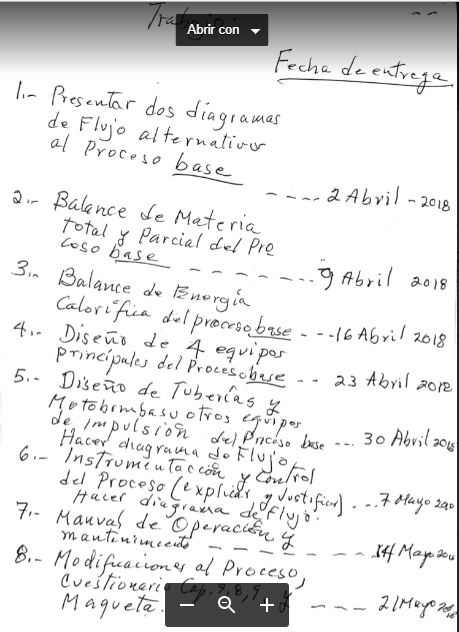 Abrir con
Fecha de entrega
1.- Presentar dos diagramas
de Flujo alternativos
al Proceso base ---- 2 Abril - 2018
2.- Balance de Materia
total y Parcial del Pro
ceso base ------- 9 Abril 2018
3.- Balance de Energía
Calorífica del proceso base --- 16 Abril 2018
4.- Diseño de 4 equipos
principales del Proceso base -- 23 Abril 2018
5.- Diseño de Tuberías y
Motobombas u otros equipos
de impulsión del Proceso base --- 30 Abril 2018
Hacer diagrama de Flujo
6.- Instrumentación y Control
del Proceso (explicar y Justificar) --- 7 Mayo
Hacer diagrama de flujo.
7.- Manual de Operación y
mantenimiento -------- 14 Mayo
8.- Modificaciones al Proceso,
Cuestionario Cap. 7, 8, 9 y
Maqueta. ---- 21 Mayo